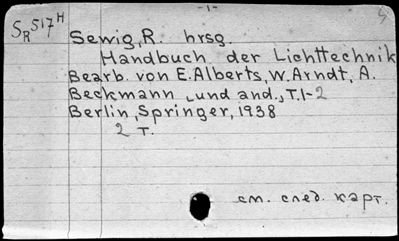 -1-
SR517H
Sewig, R. hrsg.
Handbuch der Lichttechnik
Bearb. von E. Alberts, W. Arndt, A.
Beckmann und and., T.1-2
Berlin, Springer, 1938
2 т.
см. след. карт.